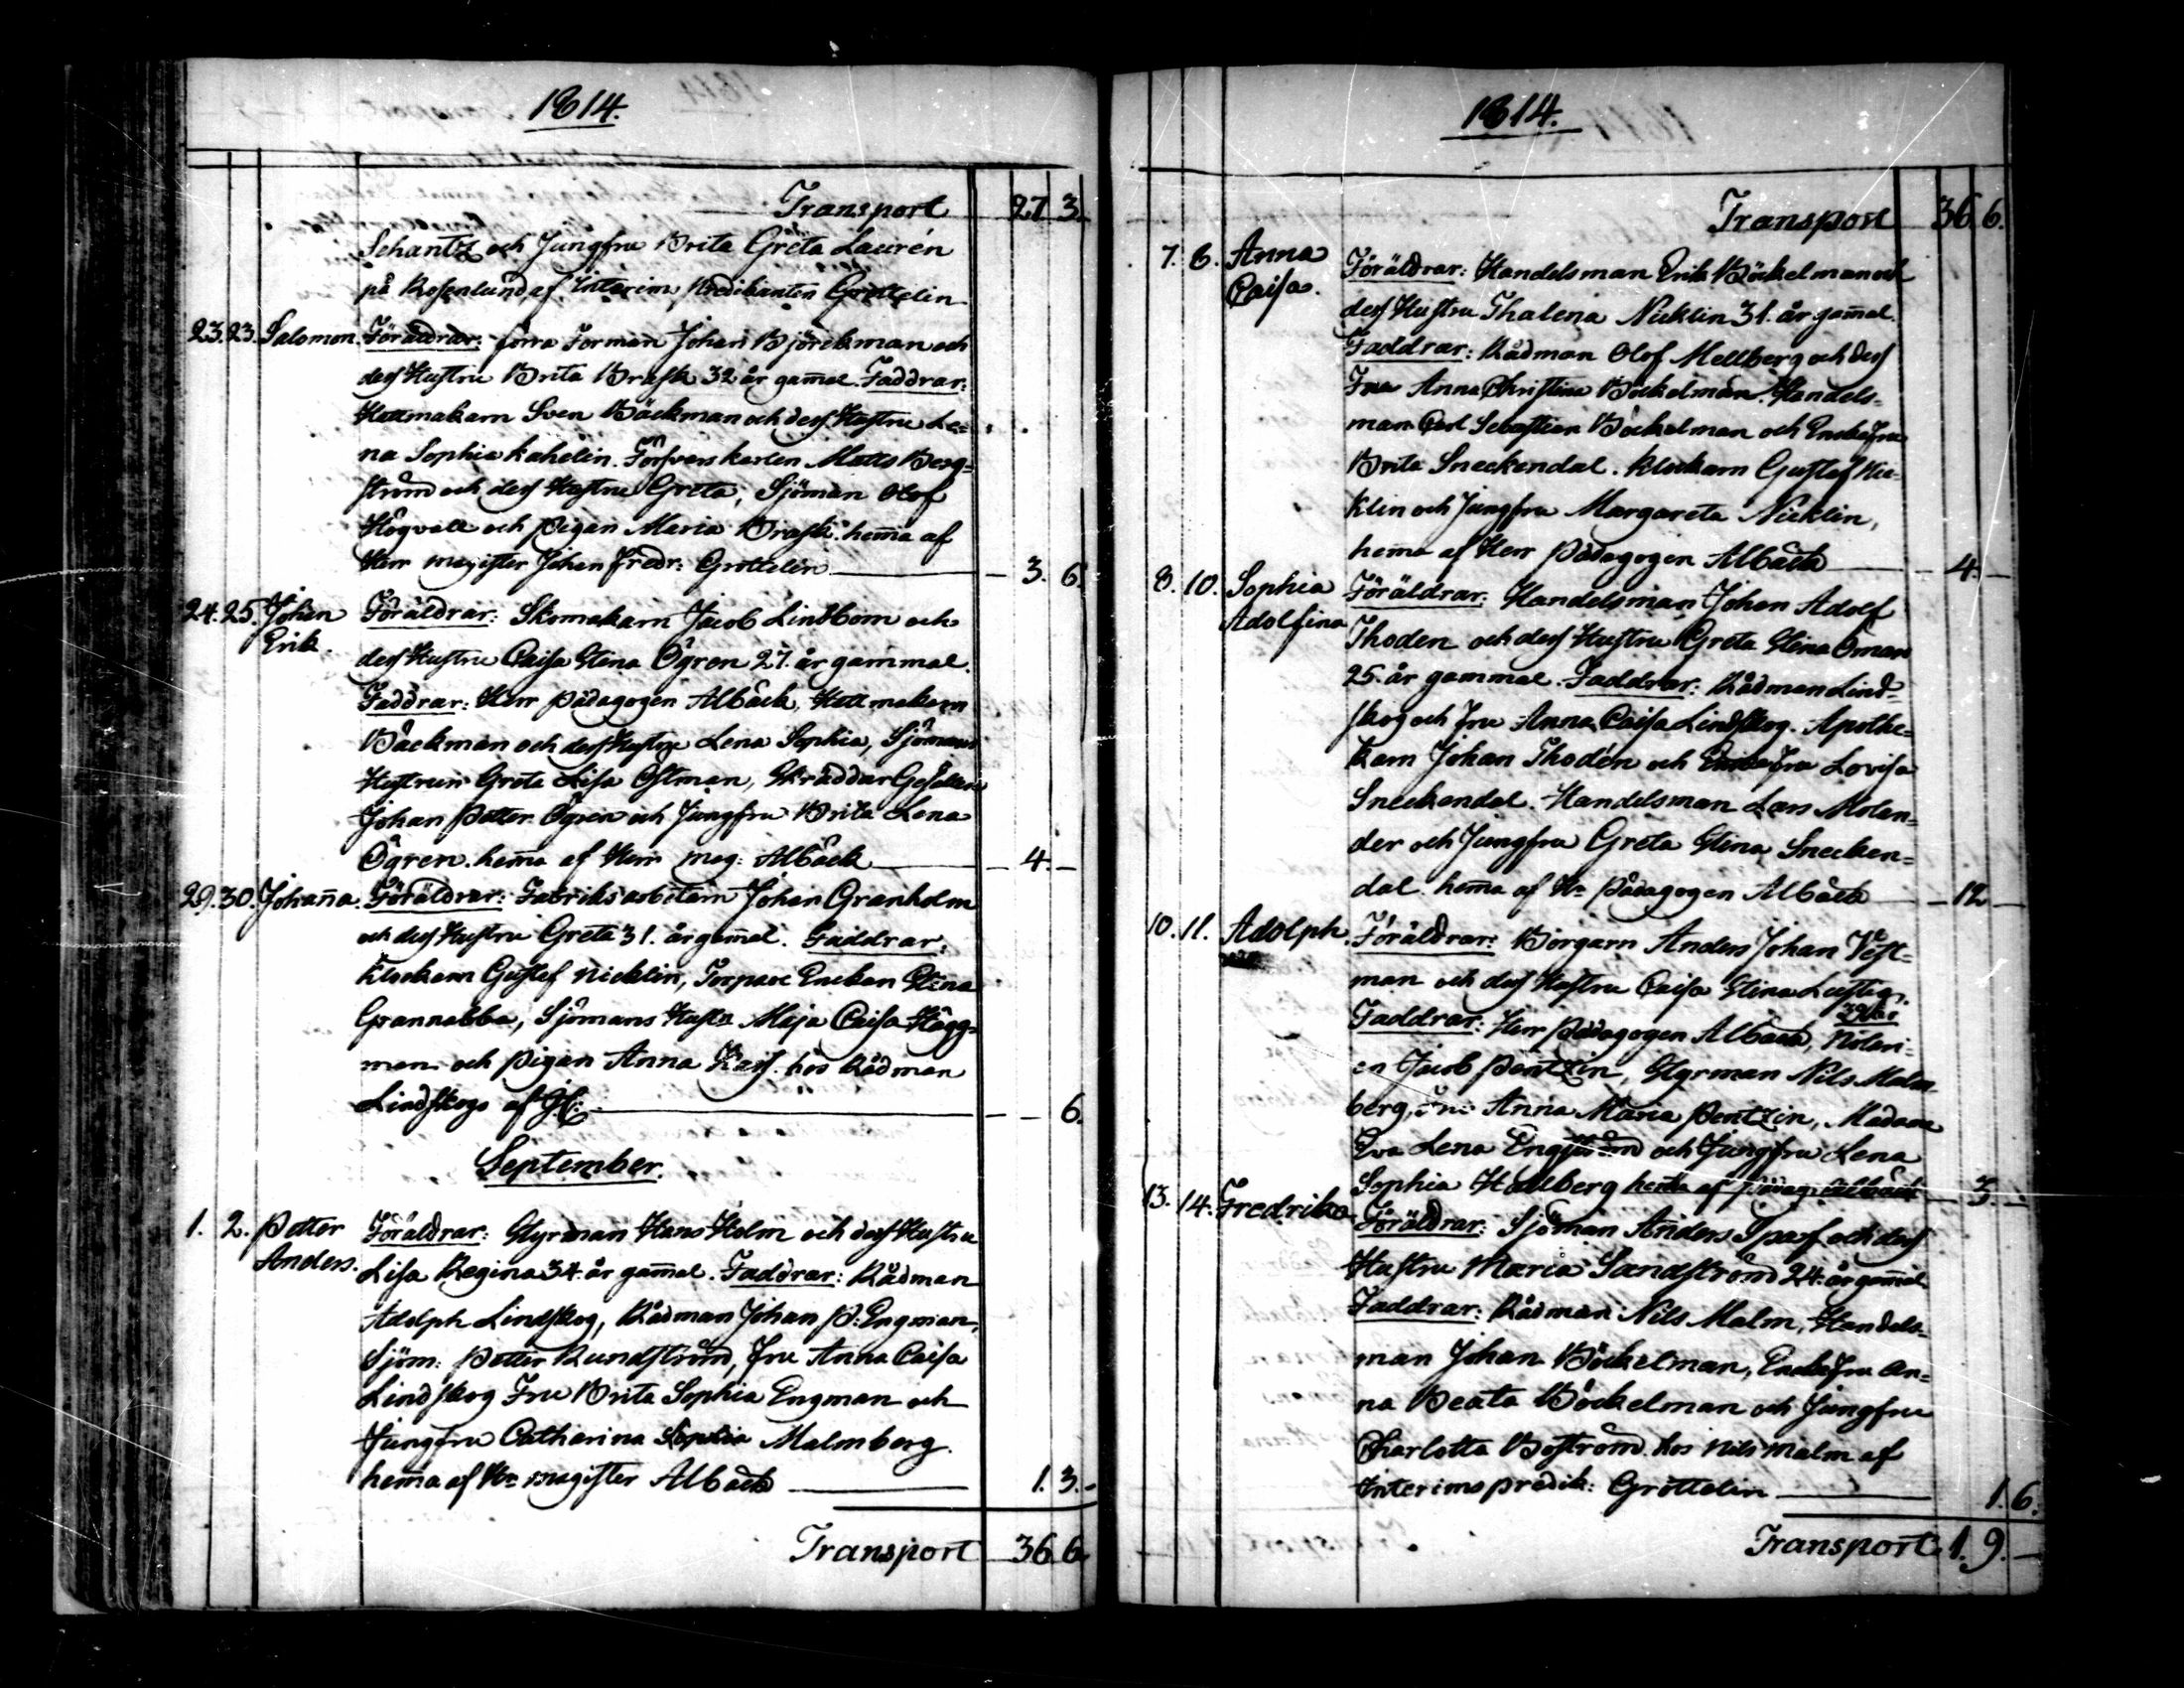 1814.
Transport 27 3.
Schantz och Jungfru Brita Greta Laurén
på Rosenlund af Interims Predikanten Gröttelin
23. 23. Salomon. Föräldrar: förra Forman Johan Björckman och
dess Hustru Brita Brask 32 år gam̄al. Faddrar:
Hattmakarn Sven Bäckman och dess Hustru Le=
na Sophia Kahelin. Matts Berg=
ström och dess Hustru Greta, Sjöman Olof
Högvall och Pigan Maria Brask. hem̄a af
Herr Magister Johan Fredr: Gröttelin 3. 6.
24. 25. Johan Erik. Föräldrar: Skomakarn Jacob Lindbom och
dess Hustru Caisa Stina Ögren 27. år gammal.
Faddrar: Herr Pädagogen Albäck, Hattmakarn
Bäckman och dess Hustru Lena Sophia, Sjömans
Hustrun Greta Lisa Östman, Skräddar Gesällen
Johan Petter Ögren och Jungfru Brita Lena
Ögren. hem̄a af Herr Mag: Albäck 4. –
29. 30. Johan̄a. Föräldrar: Fabriks arbetarn Johan Granholm
och dess Hustru Greta 31. år gam̄al. Faddrar:
Klockarn Gustef Nicklin, Torpare Enckan Stina
Grannabba, Sjömans Hustn Maja Caisa Hägg=
man och Pigan Anna hos Rådman
Lindskogs af 6.
September.
1. 2. Petter Anders. Föräldrar: Styrman Hans Holm och dess Hustru
Lisa Regina 34. år gam̄al. Faddrar: Rådman
Adolph Lindskog, Rådman Johan P: Engman,
Sjöm: Petter Rundström, Fru Anna Caisa
Lindskog Fru Brita Sophia Engman och
Jungfru Catharina Sophia Malmberg.
hem̄a af Hr Magister Albäck 1. 3. –
Transport 36 6.
1814.
Transport 36 6.
7. 8. Anna Caisa. Föräldrar: Handelsman Erik Böckelman och
dess Hustru Thalena Nicklin 31. år gam̄al.
Faddrar: Rådman Olof Mellberg och dess
Fru Anna Christina Böckelman. Handels=
man Carl Sebastian Böckelman och Enckefru
Brita Sneckendal. Klockarn Gustef Nic=
klin och Jungfru Margareta Nicklin,
hem̄a af Herr Pädagogen Albäck 4. –
8. 10. Sophia Adolfina Föräldrar: Handelsman Johan Adolf
Thoden och dess Hustru Greta Stina Öman
25. år gammal. Faddrar: Rådman Lind=
skog och Fru Anna Caisa Lindskog. Apothe=
karn Johan Thodén och Enckefru Lovisa
Sneckendal. Handelsman Lars Molan=
der och Jungfru Greta Stina Snecken=
dal. hem̄a af Hr Pädagogen Albäck 12 –
10. 11. Adolph. Föräldrar: Borgarn Anders Johan Vest=
man och dess Hustru Caisa Stina Lustig.
Faddrar: Herr Pädagogen Albäck, Notari=
en Jacob Pentzin, Styrman Nils Malm
berg, Fru Anna Maria Pentzin, Madame
Eva Lena och Jungfru Lena
Sophia Hallberg hem̄a af Pädag: Albäck 3 –
13. 14. Fredrika. Föräldrar: Sjöman Anders Sparf och dess
Hustru Maria Sandström 24. år gam̄al
Faddrar: Rådman Nils Malm, Handels=
man Johan Böckelman, Enckefru An=
na Beata Böckelman och Jungfru
Charlotta Boström. hos Nils Malm af
Interims predik: Gröttelin 1. 6.
Transport 1. 9. –